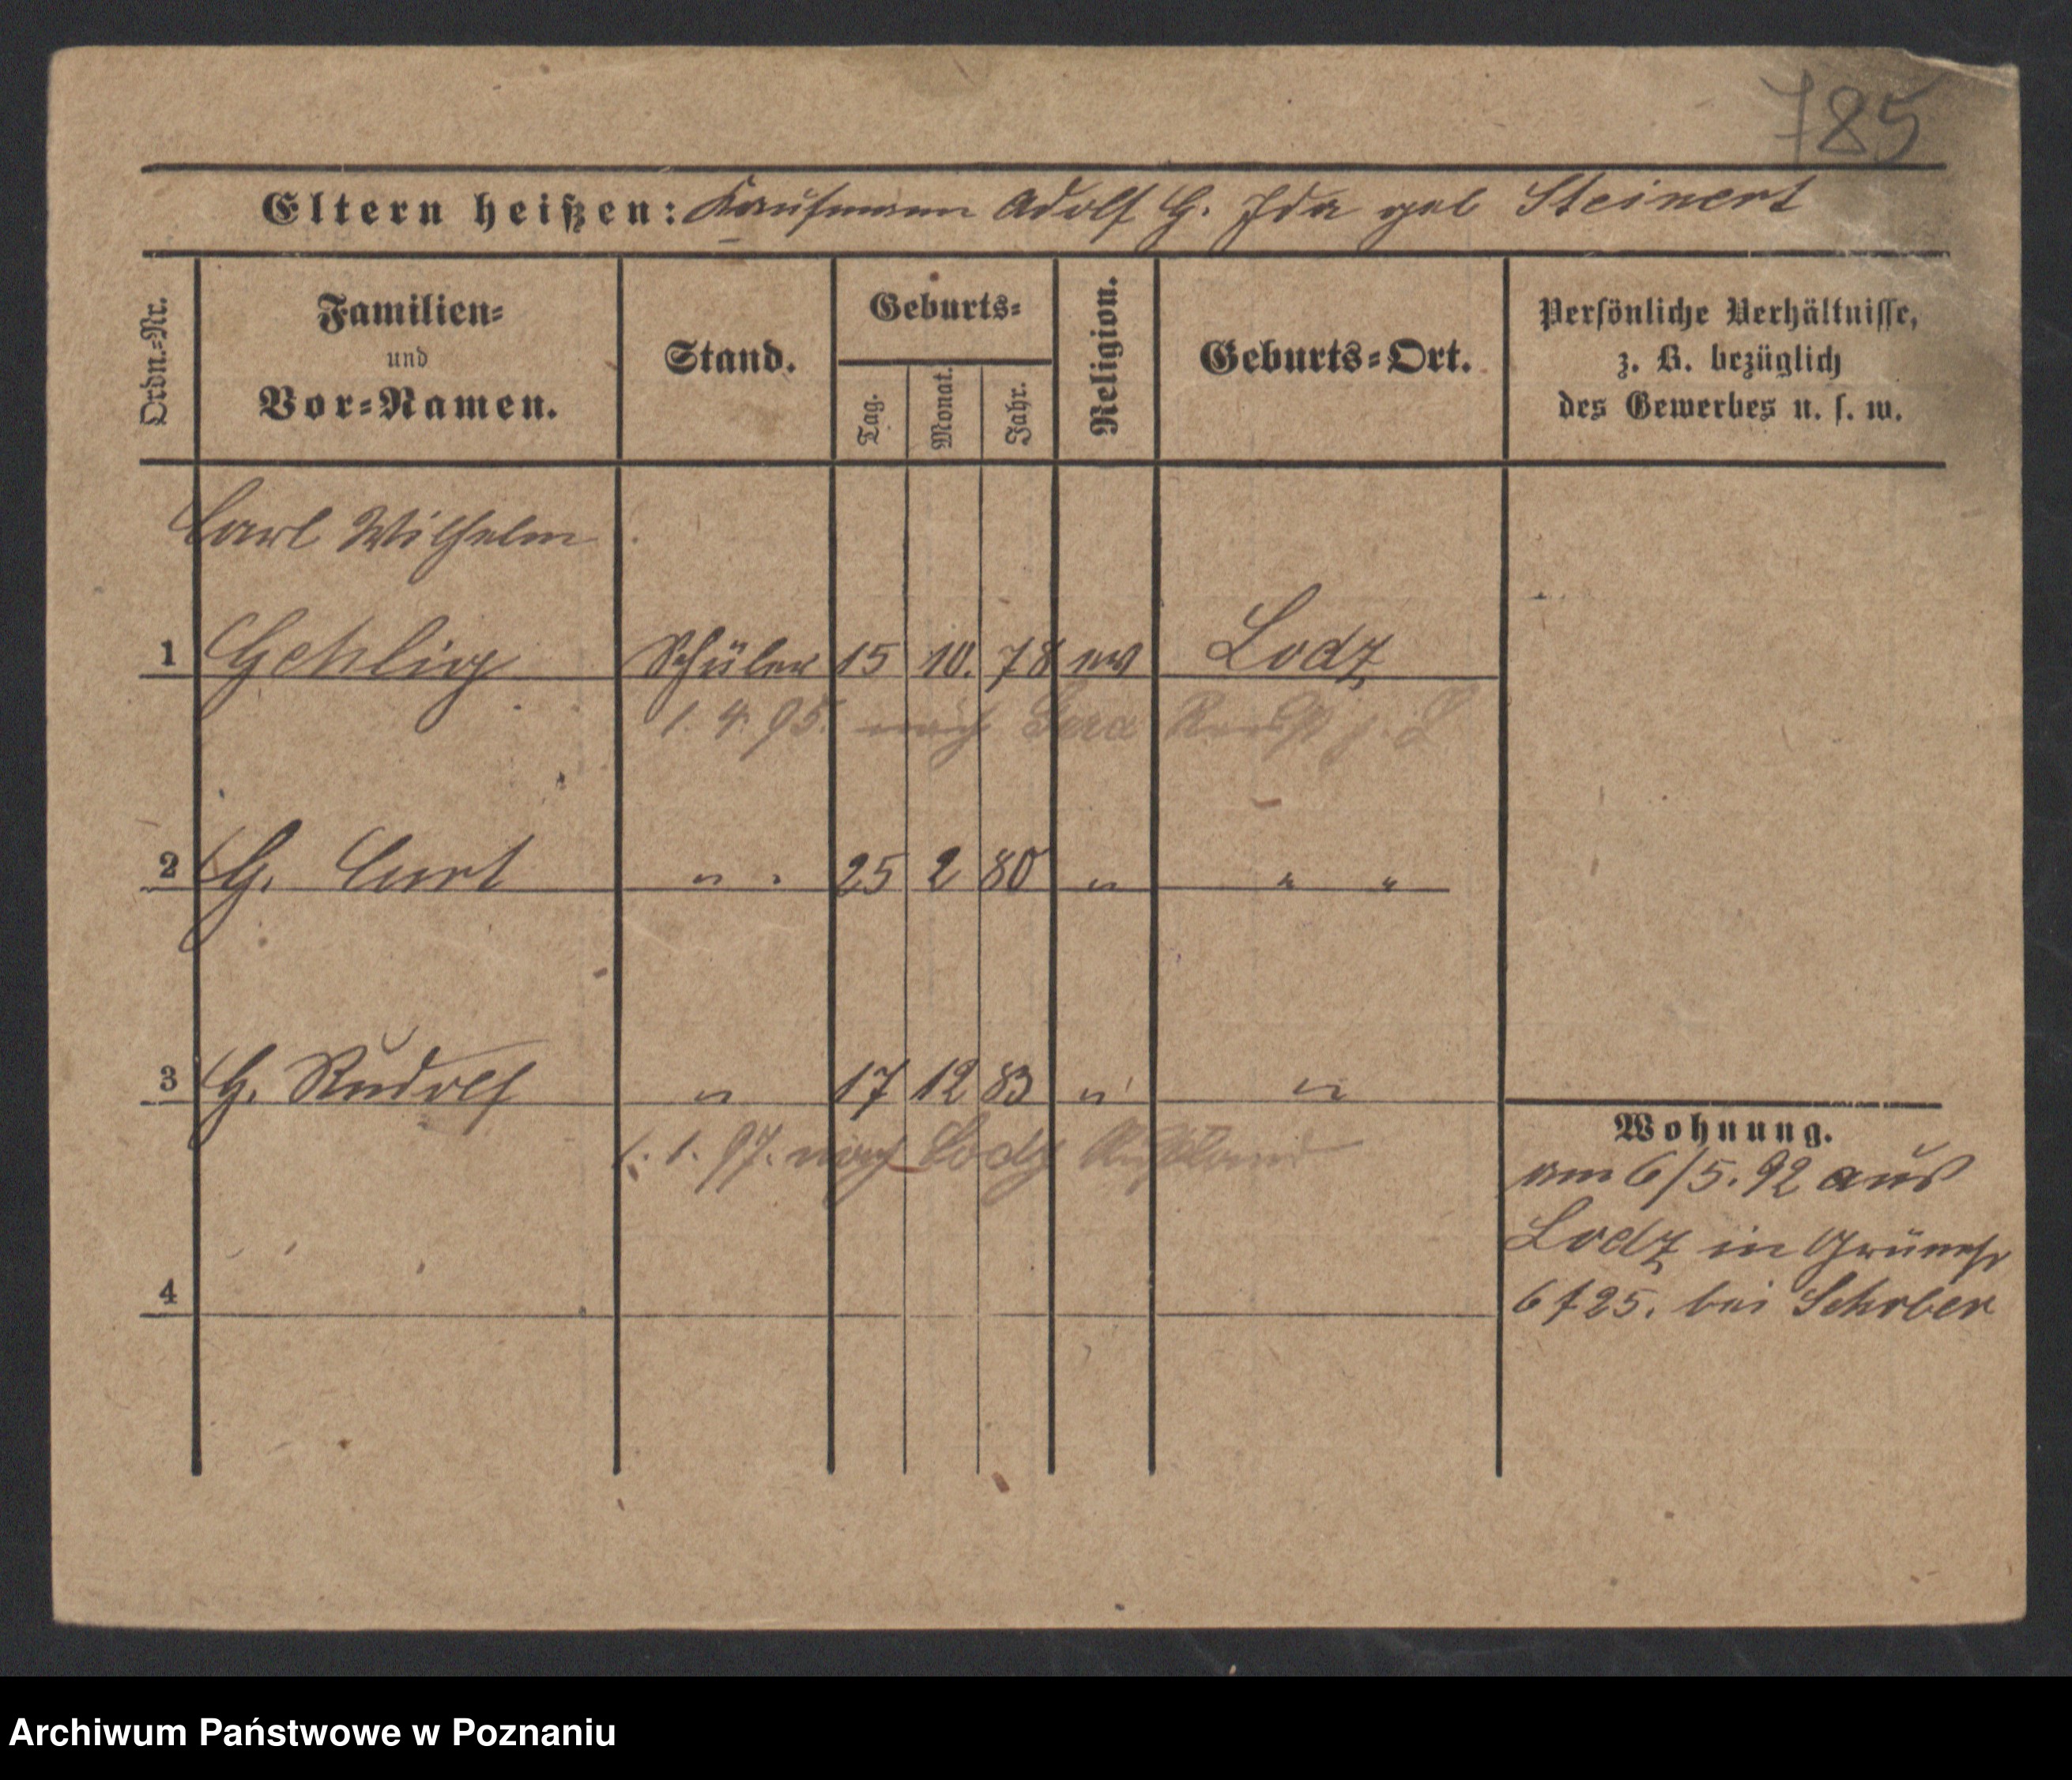 785
Eltern heißen: Kaufmann Adolf G. Ida geb Steinert
Ordn.-Nr.
Familien-
und
Vor-Namen.
Stand.
Geburts-
Tag.
Monat.
Jahr.
Religion.
Geburts-Ort.
Persönliche Verhältnisse,
z. B. bezüglich
des Gewerbes u. s. w.
Carl Wilhelm
1 Gehlig Schüler 15 10. 78 ev Lodz
1. 4. 95. nach Gera
2 G. Curt " 25 2 80 " " "
3 G. Rudolf " 17 12 83 " "
1. 1. 97. nach Lodz Rußland
4
Wohnung.
am 6/5. 92 aus
Lodz in Grünestr
6 f 25. bei Schober
Archiwum Państwowe w Poznaniu